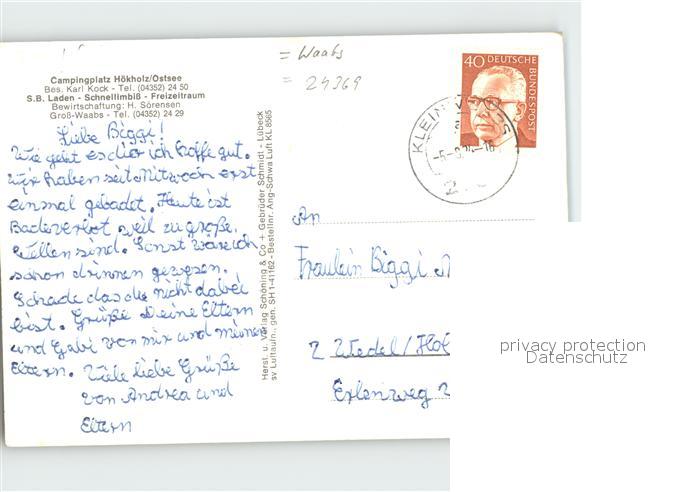 = Waabs
= 24369
Campingplatz Hökholz/Ostsee
Bes. Karl Kock - Tel. (04352) 24 50
S.B. Laden - Schnellimbiß - Freizeitraum
Bewirtschaftung: H. Sörensen
Groß-Waabs - Tel. (04352) 24 29
Liebe Biggi!
Wie geht es dier ich hoffe gut.
Wir haben seit Mitwoch erst
einmal gebadet. Heute ist
Badeverbot weil zu große
Wellen sind. Sonst wäre ich
schon drinnen gewesen.
Schade das du nicht dabei
bist. Grüße Deine Eltern
und Gabi von mir und meinen
Eltern. Viele liebe Grüße
von Andrea und
Eltern
Herst. u. Verlag Schöning & Co + Gebrüder Schmidt - Lübeck
sv Luftaufn., gen. SH 1-41162 - Bestellnr. Ang-Schwa Luft KL 8565
40 DEUTSCHE
BUNDESPOST
KLEIN
An
Fräulein Biggi
2 Wedel/Hol
Erlenweg
privacy protection
Datenschutz